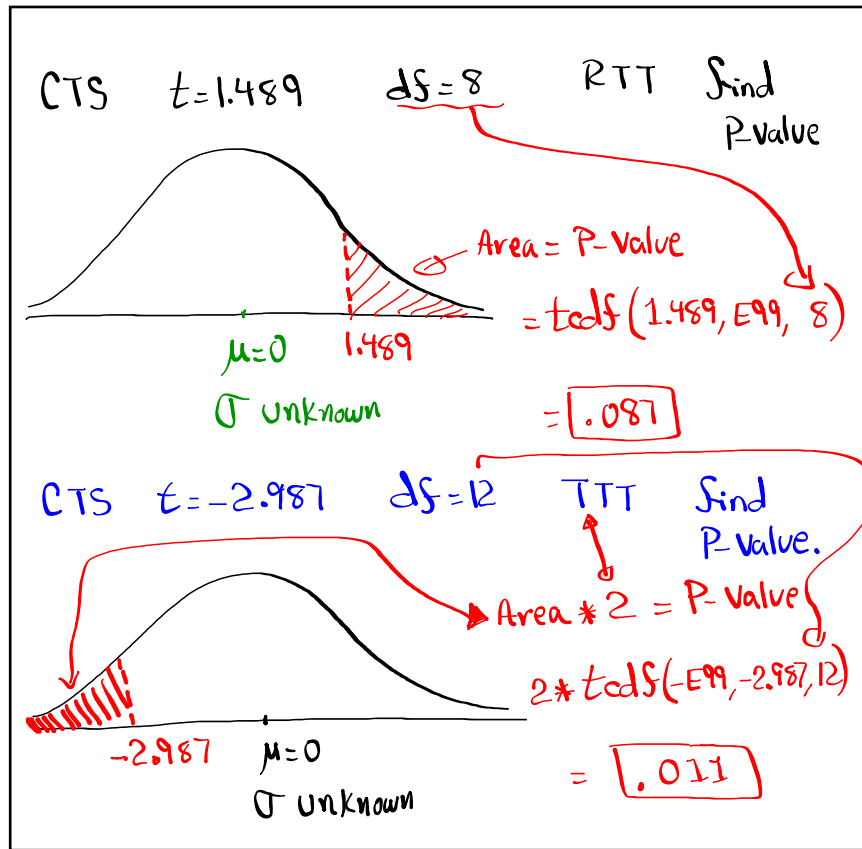 CTS t=1.489 df=8 RTT find
P-value
Area = P-value
= tcdf(1.489, E99, 8)
μ=0 1.489
σ unknown
= .087
CTS t=-2.987 df=12 TTT find
P-value.
Area * 2 = P-value
2* tcdf(-E99, -2.987, 12)
-2.987 μ=0
σ unknown
= .011